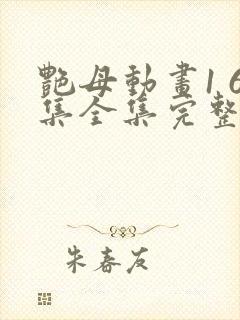 艷母動畫1 6
集全集完整
朱春友